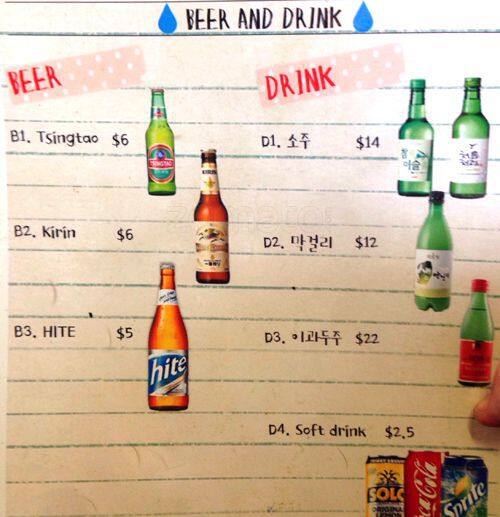 BEER AND DRINK
BEER
B1. Tsingtao $6
TSINGTAO
B2. Kirin $6
KIRIN
B3. HITE $5
hite
DRINK
D1. 소주 $14
D2. 막걸리 $12
D3. 이과두주 $22
D4. Soft drink $2.5
SOLO
ORIGINAL
LEMON
Coca-Cola
Sprite